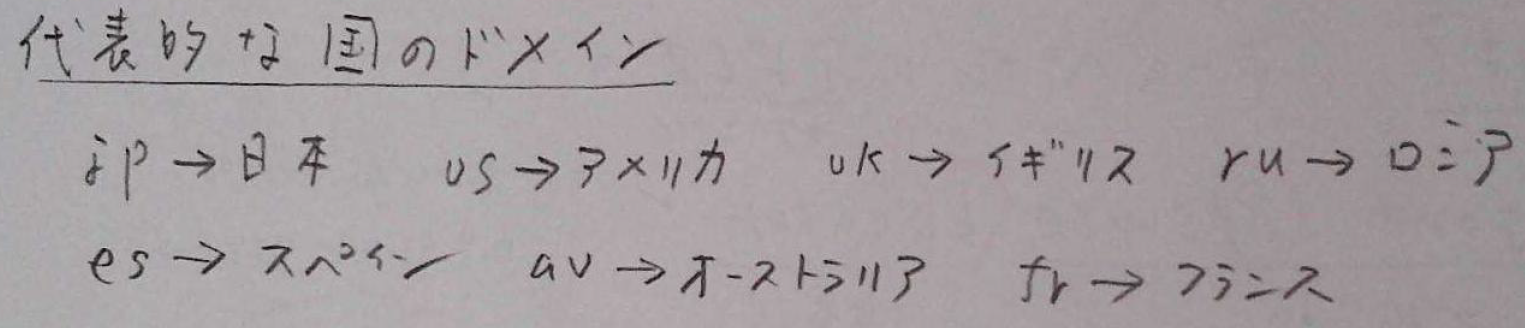 代表的な国のドメイン
jp→日本 us→アメリカ uk→イギリス ru→ロシア
es→スペイン au→オーストラリア fr→フランス